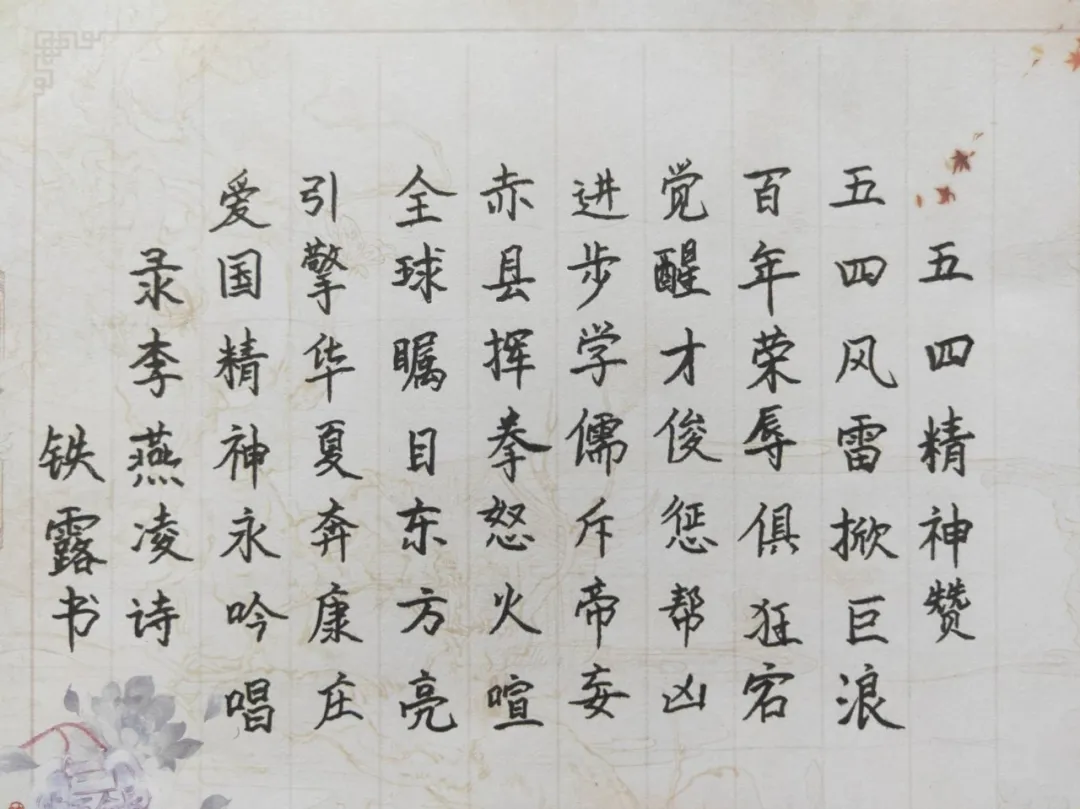 五四精神赞
五四风雷掀巨浪
百年荣辱俱狂宕
觉醒才俊惩帮凶
进步学儒斥帝妄
赤县挥拳怒火喧
全球瞩目东方亮
引擎华夏奔康庄
爱国精神永吟唱
录李燕凌诗
铁露书